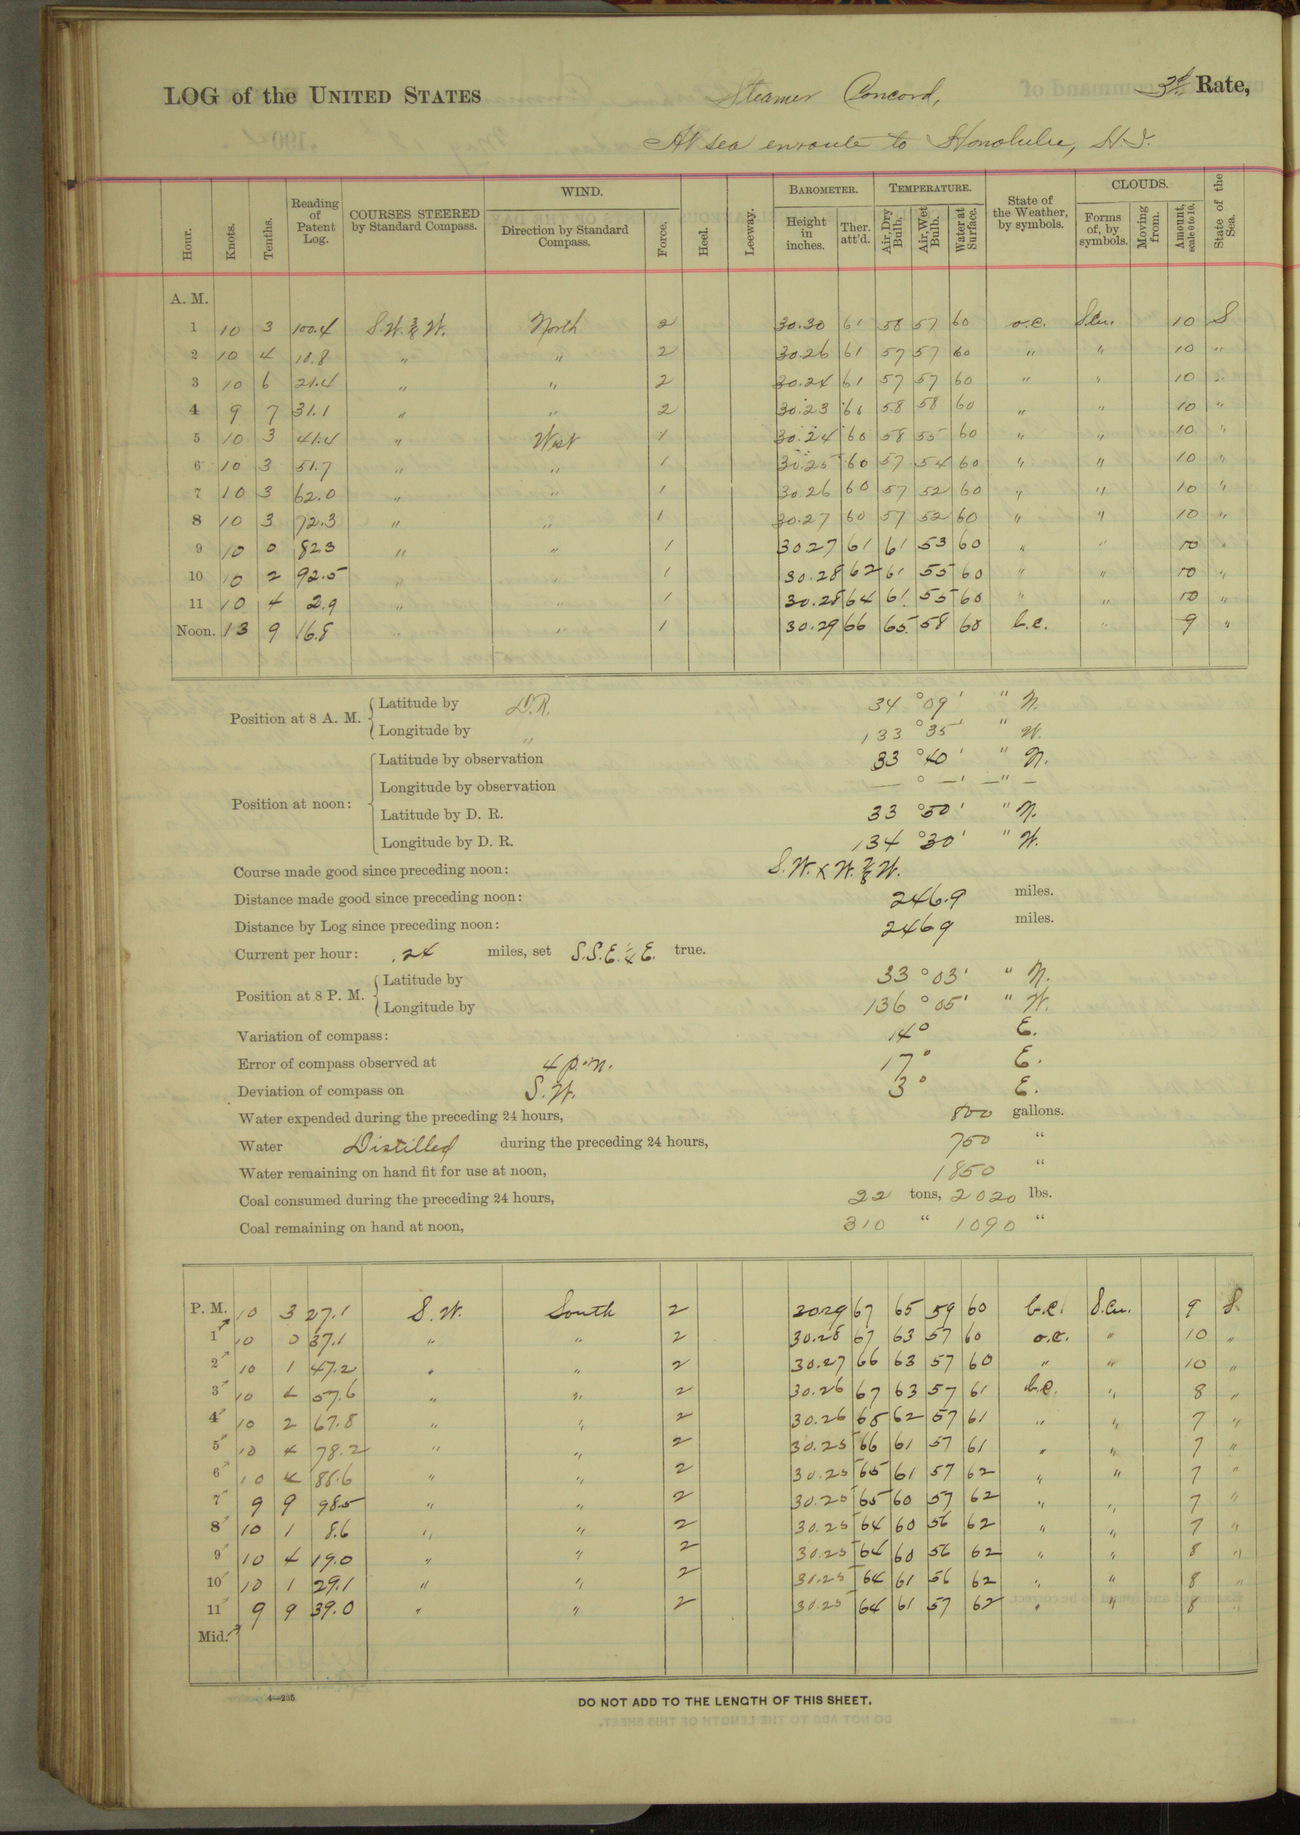 LOG of the UNITED STATES Steamer Concord, 3d Rate,
At sea enroute to Honolulu, H.I.
Hour. Knots. Tenths. Reading of Patent Log. COURSES STEERED by Standard Compass. WIND. Direction by Standard Compass. Force. Heel. Leeway. BAROMETER. Height in inches. Ther. att'd. TEMPERATURE. Air, Dry Bulb. Air, Wet Bulb. Water at Surface. State of the Weather, by symbols. CLOUDS. Forms of, by symbols. Moving from. Amount, scale 0 to 10. State of the Sea.
A. M.
1 10 3 100.4 S.W. ⅜ W. North 2 30.30 61 58 57 60 o.c. S.cu. 10 S
2 10 4 10.8 " " 2 30.26 61 57 57 60 " " 10 "
3 10 6 21.4 " " 2 30.24 61 57 57 60 " " 10 "
4 9 7 31.1 " " 2 30.23 60 58 58 60 " " 10 "
5 10 3 41.4 " West 1 30.24 60 58 55 60 " " 10 "
6 10 3 51.7 " " 1 30.25 60 57 54 60 " " 10 "
7 10 3 62.0 " " 1 30.26 60 57 52 60 " " 10 "
8 10 3 72.3 " " 1 30.27 60 57 52 60 " " 10 "
9 10 0 823 " " 1 3027 61 61 53 60 " " 10 "
10 10 2 92.5 " " 1 30.28 62 61 55 60 " " 10 "
11 10 4 2.9 " " 1 30.28 64 61 55 60 " " 10 "
Noon. 13 9 16.8 " " 1 30.29 66 65 58 60 b.c. " 9 "
Position at 8 A. M. Latitude by D.R. 34 ° 09 ' " N.
Longitude by " 133 ° 35 ' " W.
Position at noon: Latitude by observation 33 ° 40 ' " N.
Longitude by observation — ° — ' — " —
Latitude by D. R. 33 ° 50 ' " N.
Longitude by D. R. 134 ° 30 ' " W.
Course made good since preceding noon: S.W. x W. ⅞ W.
Distance made good since preceding noon: 246.9 miles.
Distance by Log since preceding noon: 2469 miles.
Current per hour: .24 miles, set S.S.E. ¼ E. true.
Position at 8 P. M. Latitude by 33 ° 03 ' " N.
Longitude by 136 ° 05 ' " W.
Variation of compass: 14° E.
Error of compass observed at 4 p.m. 17° E.
Deviation of compass on S.W. 3° E.
Water expended during the preceding 24 hours, 800 gallons.
Water Distilled during the preceding 24 hours, 750 "
Water remaining on hand fit for use at noon, 1850 "
Coal consumed during the preceding 24 hours, 22 tons, 2020 lbs.
Coal remaining on hand at noon, 310 " 1090 "
P. M. 10 3 27.1 S.W. South 2 3029 67 65 59 60 b.c. S.cu. 9 S.
1 10 0 37.1 " " 2 30.28 67 63 57 60 o.c. " 10 "
2 10 1 47.2 " " 2 30.27 66 63 57 60 " " 10 "
3 10 4 57.6 " " 2 30.26 67 63 57 61 b.c. " 8 "
4 10 2 67.8 " " 2 30.26 65 62 57 61 " " 7 "
5 10 4 78.2 " " 2 30.25 66 61 57 61 " " 7 "
6 10 4 88.6 " " 2 30.25 65 61 57 62 " " 7 "
7 9 9 98.5 " " 2 30.25 65 60 57 62 " " 7 "
8 10 1 8.6 " " 2 30.25 64 60 56 62 " " 7 "
9 10 4 19.0 " " 2 30.25 64 60 56 62 " " 8 "
10 10 1 29.1 " " 2 30.25 64 61 56 62 " " 8 "
11 9 9 39.0 " " 2 30.25 64 61 57 62 " " 8 "
Mid.
4—235
DO NOT ADD TO THE LENGTH OF THIS SHEET.